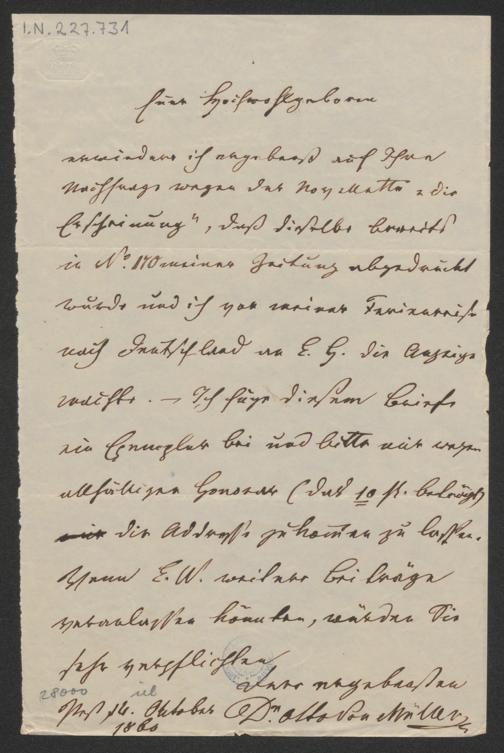 I.N. 227.731
Euer Hochwohlgeboren
erwiedere ich ergebenst auf Ihre
Nachfrage wegen der Novellette „die
Erscheinung", daß dieselbe bereits
in No. 170 meiner Zeitung abgedruckt
wurde und ich vor meiner Ferienreise
nach Deutschland an E. H. die Anzeige
machte. – Ich füge diesem Briefe
ein Exemplar bei und bitte mir wegen
allfälligen Honorar (das 10 fl. beträgt)
die Addresse zukommen zu lassen.
Wenn E. W. weitere Beiträge
veranlassen könnten, würden Sie
sehr verpflichten
Ihren ergebensten
28000
Pest, 14. Oktober Dr. Otto von Müller
1860